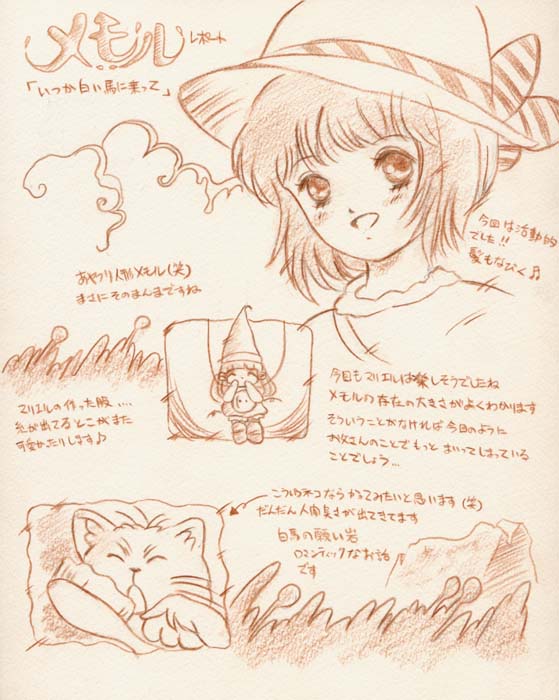 メモル レポート
「いつか白い馬に乗って」
今回は活動的
でした!!
髪もなびく♫
あやつり人形メモル(笑)
まさにそのまんまですね
マリエルの作った服....
糸が出てるとこがまた
可愛かったりします♪
今回もマリエルは楽しそうでしたね
メモルの存在の大きさがよくわかります
そういうことがなければ今日のように
お父さんのことでもっとまいってしまっている
ことでしょう...
こういうネコならかってみたいと思います(笑)
だんだん人間臭さが出てきてます
白馬の願い岩
ロマンティックなお話
です